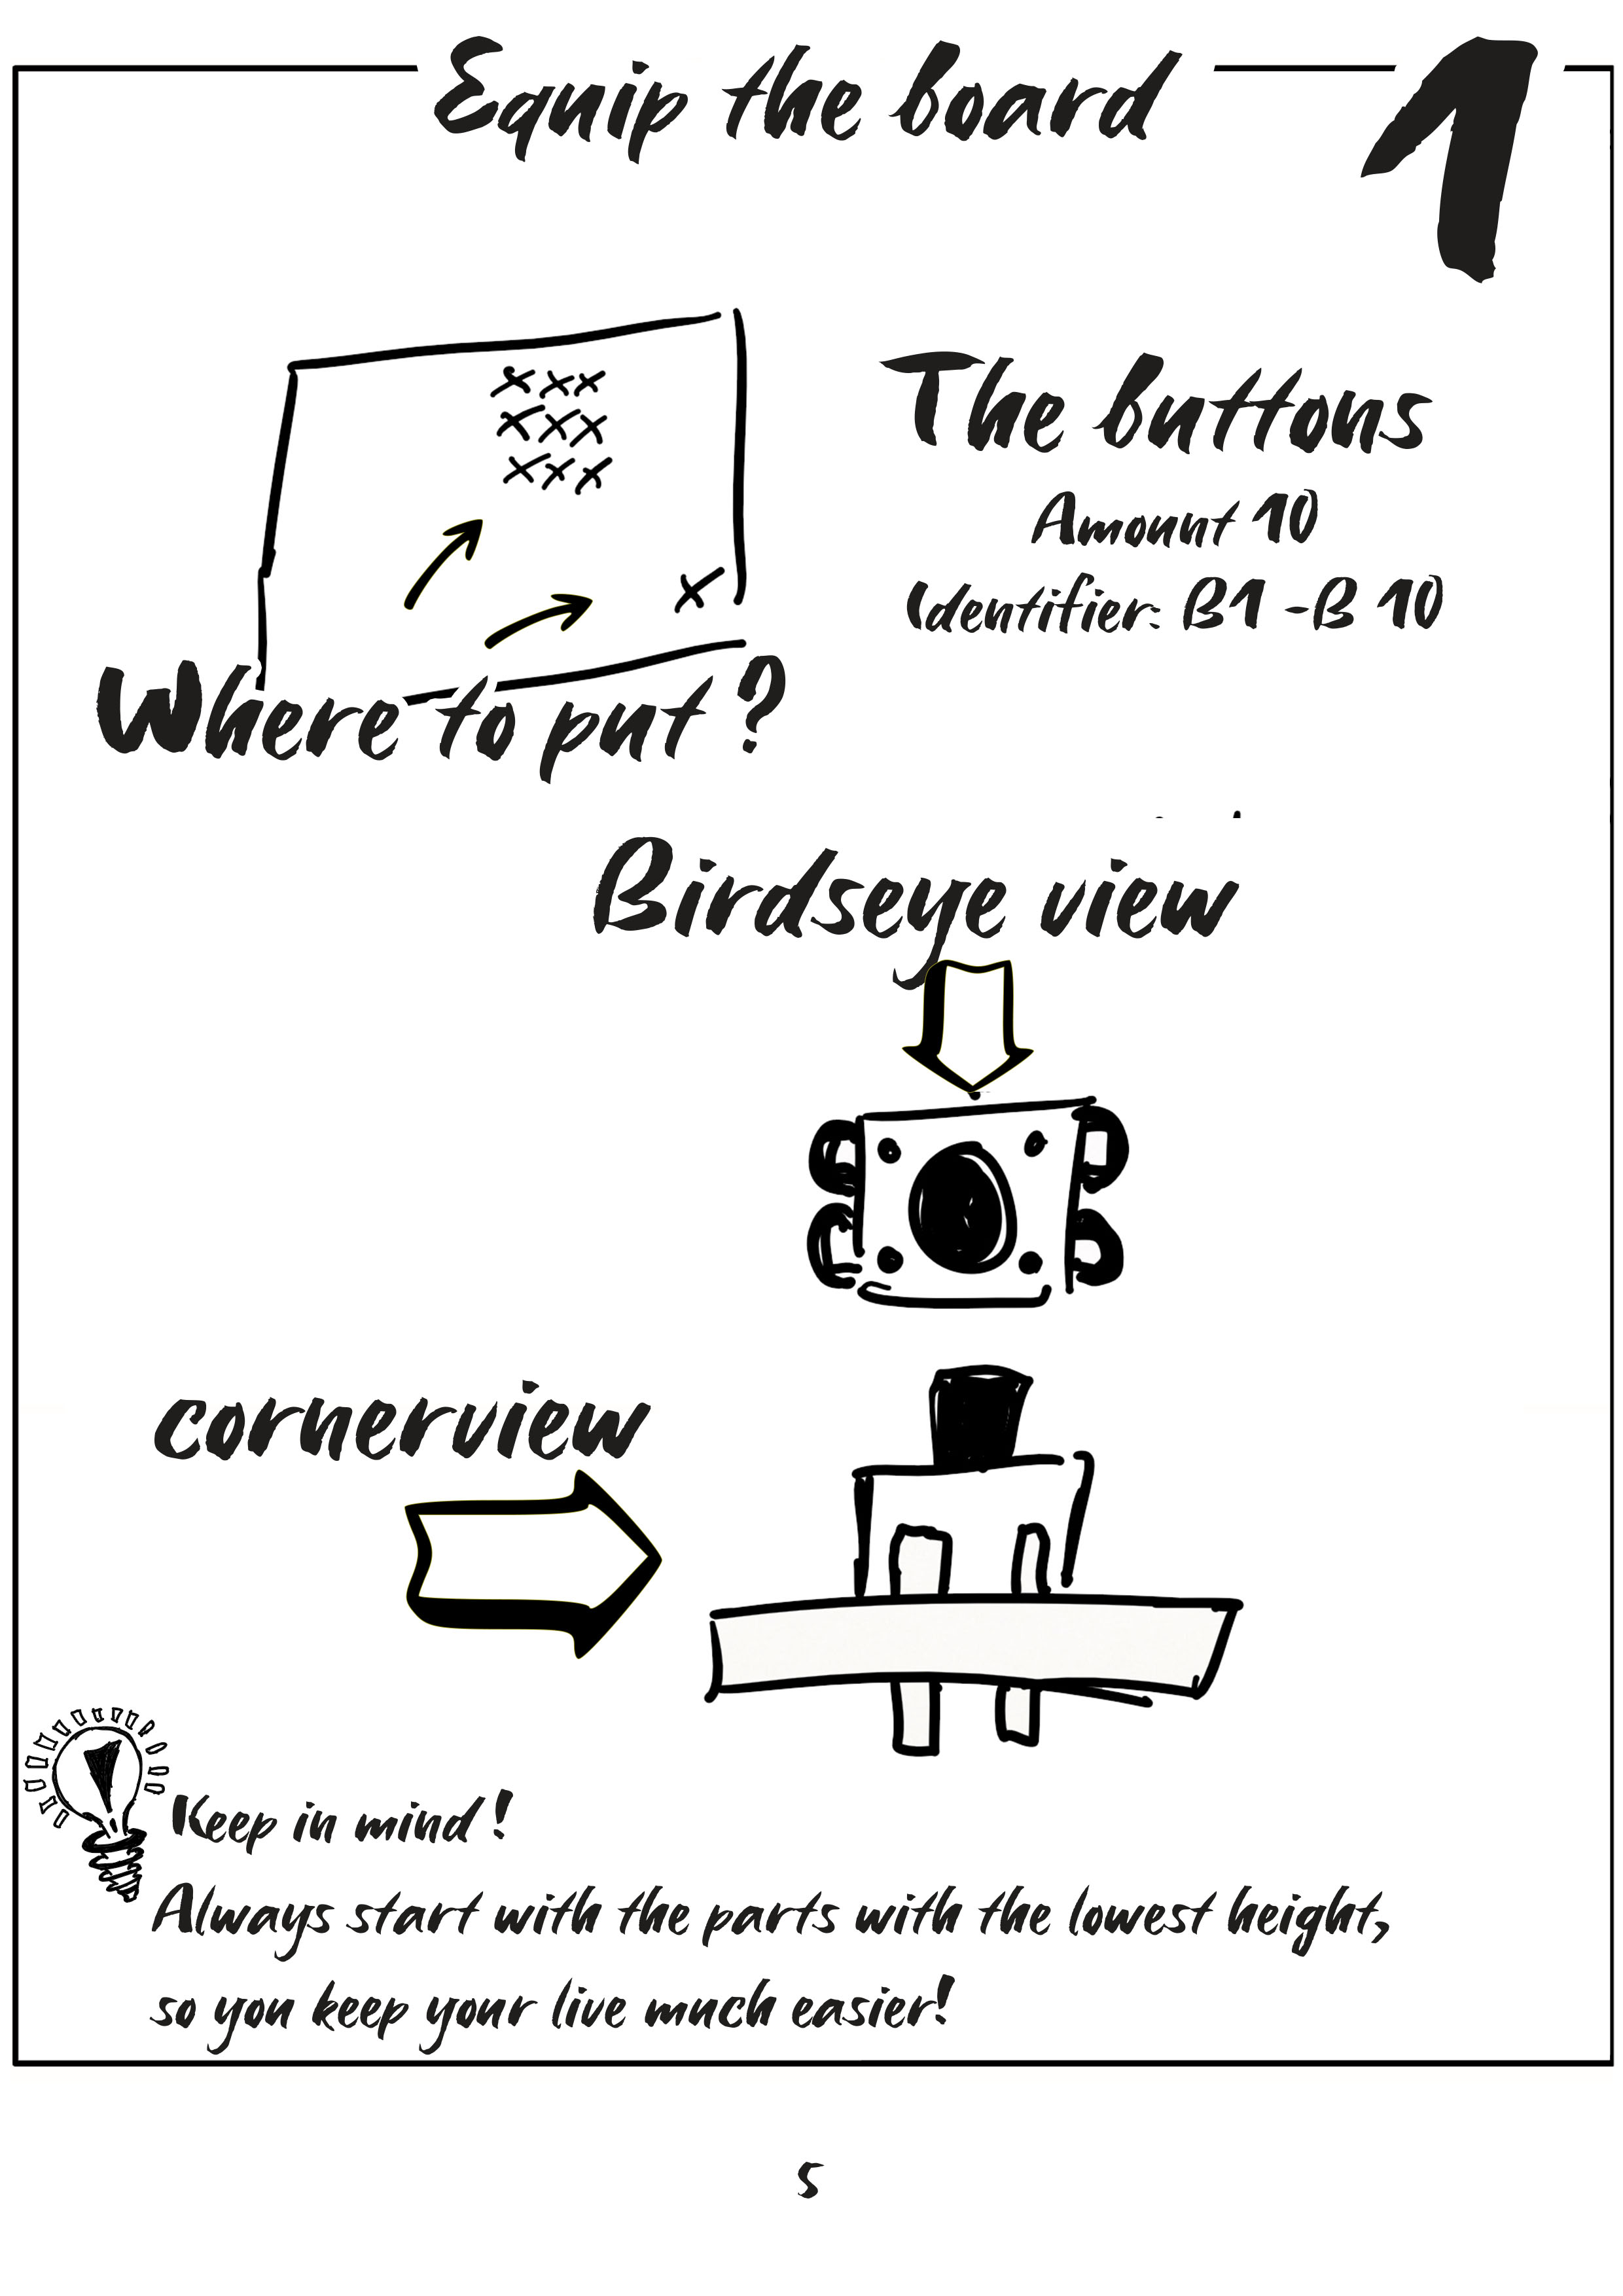 Equip the board
1
The buttons
Amount 10
Identifier: B1 -B 10
Where to put ?
Birdseye view
cornerview
Keep in mind !
Always start with the parts with the lowest height,
so you keep your live much easier!
5